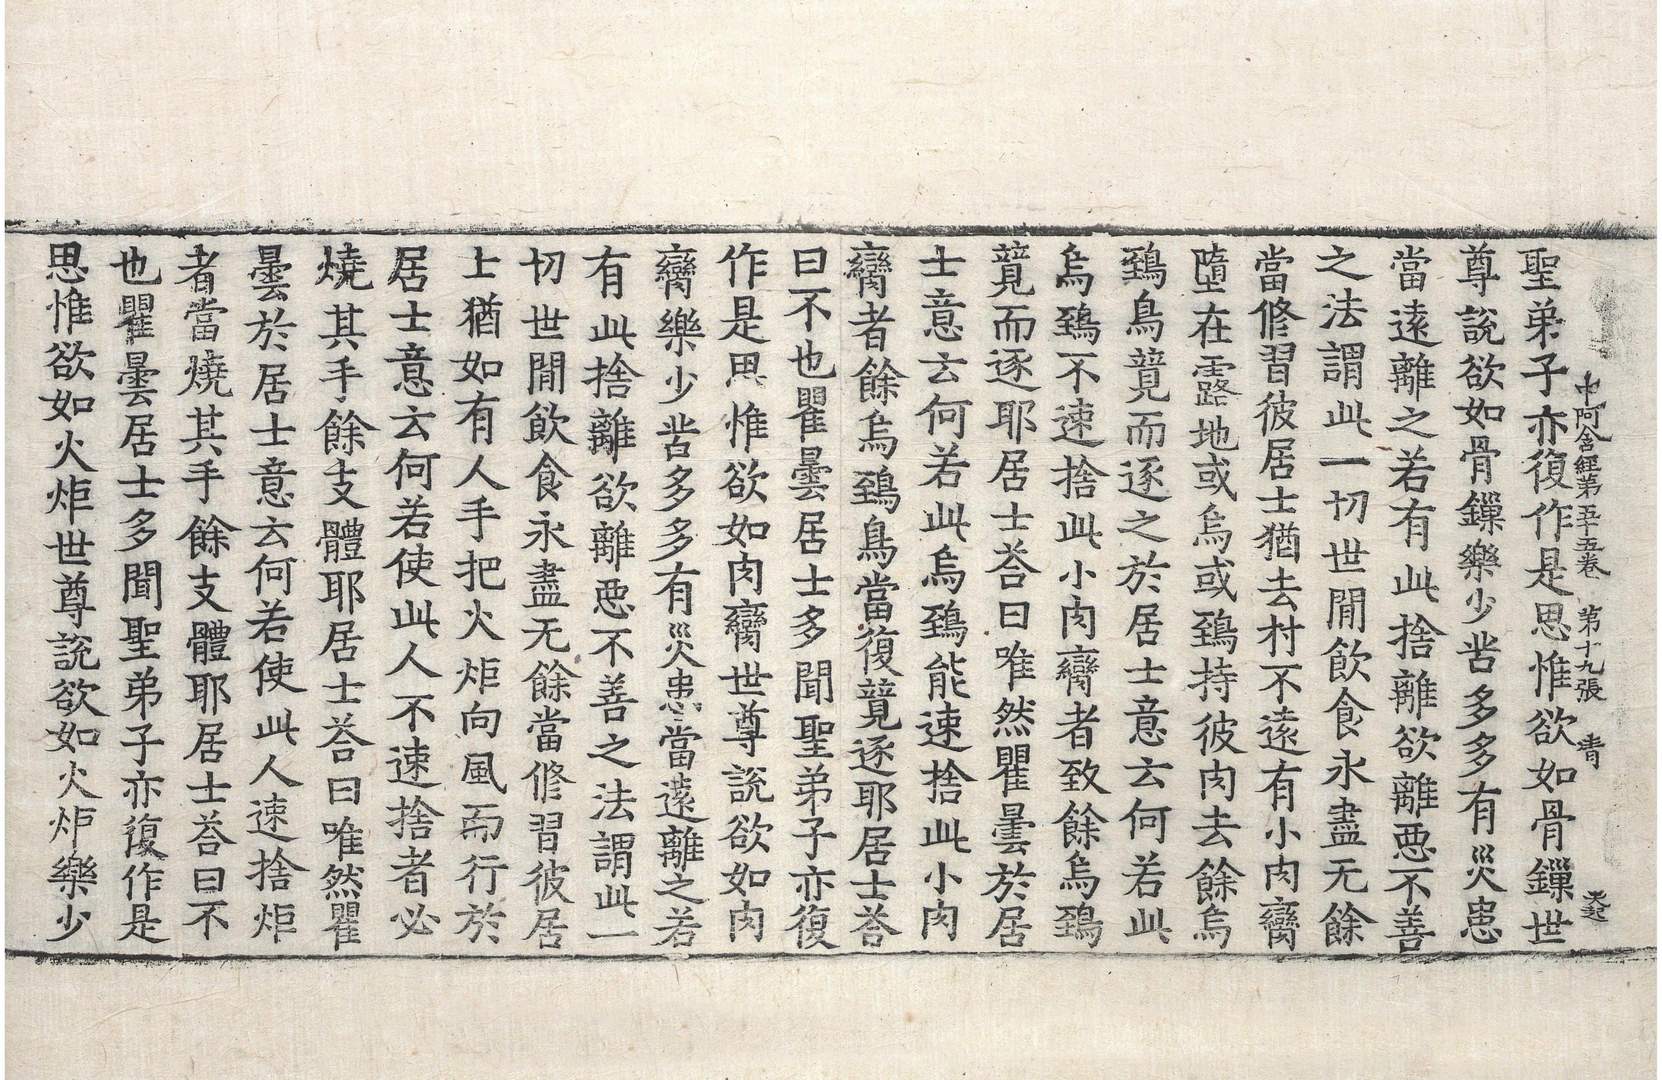 中阿含經第五十五卷 第十九張 青
聖弟子亦復作是思惟欲如骨鏁世
尊說欲如骨鏁樂少苦多多有災患
當遠離之若有此捨離欲離惡不善
之法謂此一切世間飮食永盡无餘
當修習彼居士猶去村不遠有小肉臠
墮在露地或烏或鵄持彼肉去餘烏
鵄鳥競而逐之於居士意云何若此
烏鵄不速捨此小肉臠者致餘烏鵄
競而逐耶居士荅曰唯然瞿曇於居
士意云何若此烏鵄能速捨此小肉
臠者餘烏鵄鳥當復競逐耶居士荅
曰不也瞿曇居士多聞聖弟子亦復
作是思惟欲如肉臠世尊說欲如肉
臠樂少苦多多有災患當遠離之若
有此捨離欲離惡不善之法謂此一
切世間飮食永盡无餘當修習彼居
士猶如有人手把火炬向風而行於
居士意云何若使此人不速捨者必
燒其手餘支體耶居士荅曰唯然瞿
曇於居士意云何若使此人速捨炬
者當燒其手餘支體耶居士荅曰不
也瞿曇居士多聞聖弟子亦復作是
思惟欲如火炬世尊說欲如火炬樂少